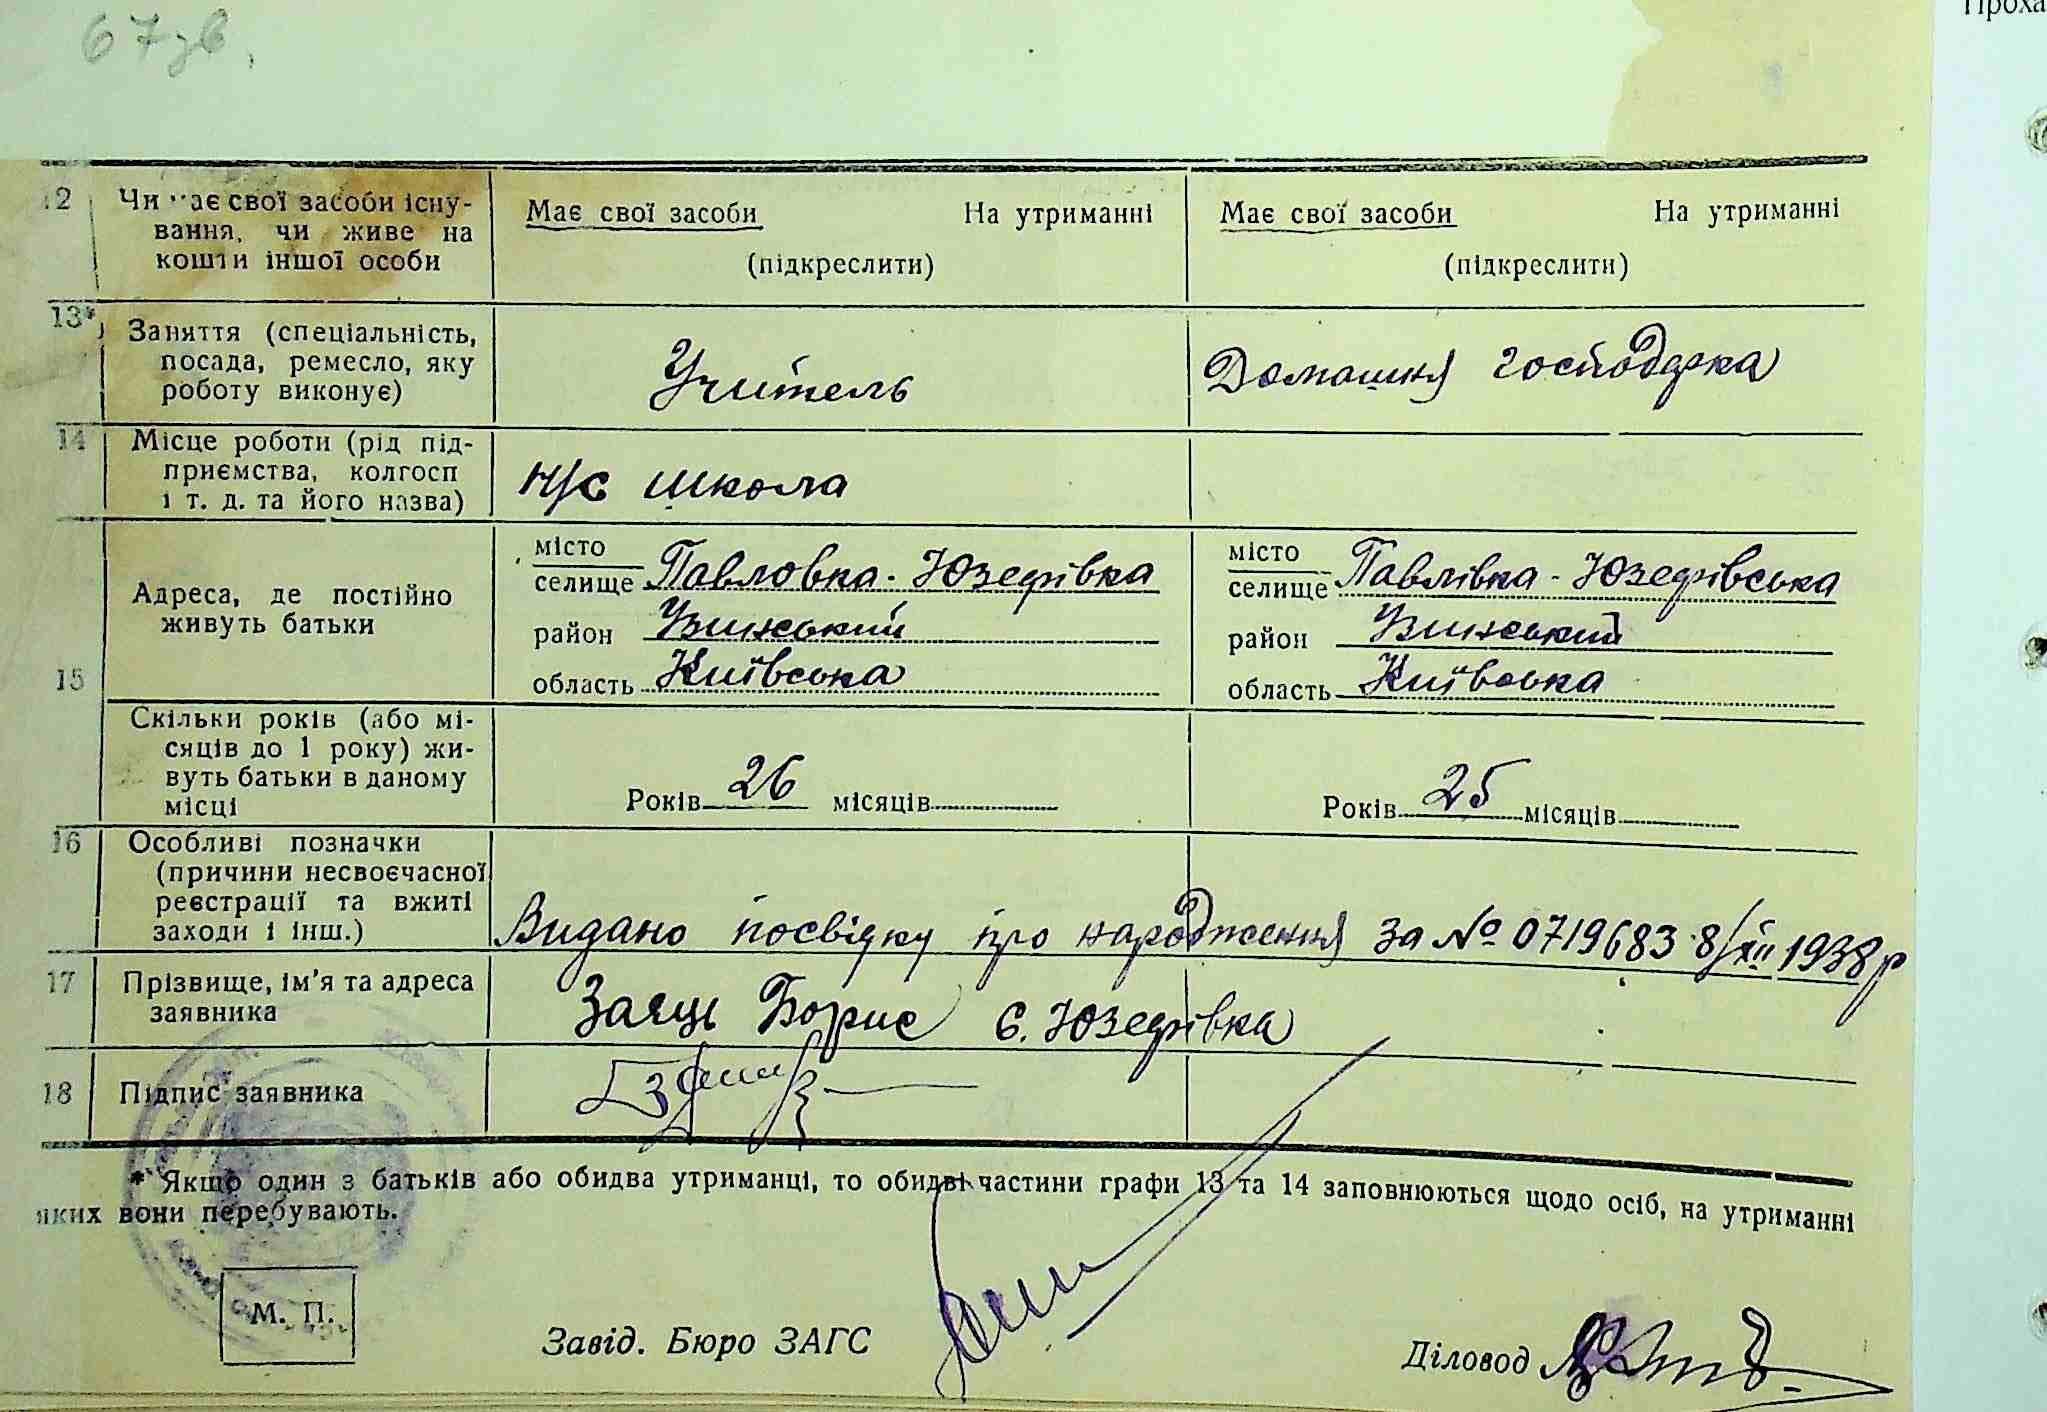 67зв.
Проха
12 Чи має свої засоби існу-
вання, чи живе на
кошти іншої особи
Має свої засоби На утриманні
(підкреслити)
Має свої засоби На утриманні
(підкреслити)
13* Заняття (спеціальність,
посада, ремесло, яку
роботу виконує)
Учитель
Домашня господарка
14 Місце роботи (рід під-
приємства, колгосп
і т. д. та його назва)
Н/С школа
15 Адреса, де постійно
живуть батьки
місто
селище Павловка-Юзефівка
район Узинський
область Київська
місто
селище Павлівка-Юзефівська
район Узинський
область Київська
Скільки років (або мі-
сяців до 1 року) жи-
вуть батьки в даному
місці
Років 26 місяців
Років 25 місяців
16 Особливі позначки
(причини несвоєчасної
реєстрації та вжиті
заходи і інш.)
Видано посвідку про народження за № 0719683 8/XII 1938 р
17 Прізвище, ім'я та адреса
заявника
Заяць Борис с. Юзефівка
18 Підпис заявника
* Якщо один з батьків або обидва утриманці, то обидві частини графи 13 та 14 заповнюються щодо осіб, на утриманні
яких вони перебувають.
М. П.
Завід. Бюро ЗАГС
Діловод